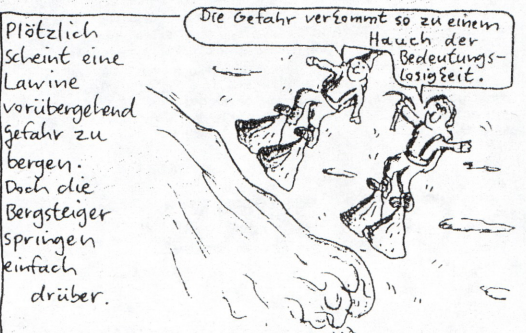 Plötzlich
scheint eine
Lawine
vorübergehend
Gefahr zu
bergen.
Doch die
Bergsteiger
springen
einfach
drüber.
Die Gefahr verkommt so zu einem
Hauch der
Bedeutungs-
losigkeit.